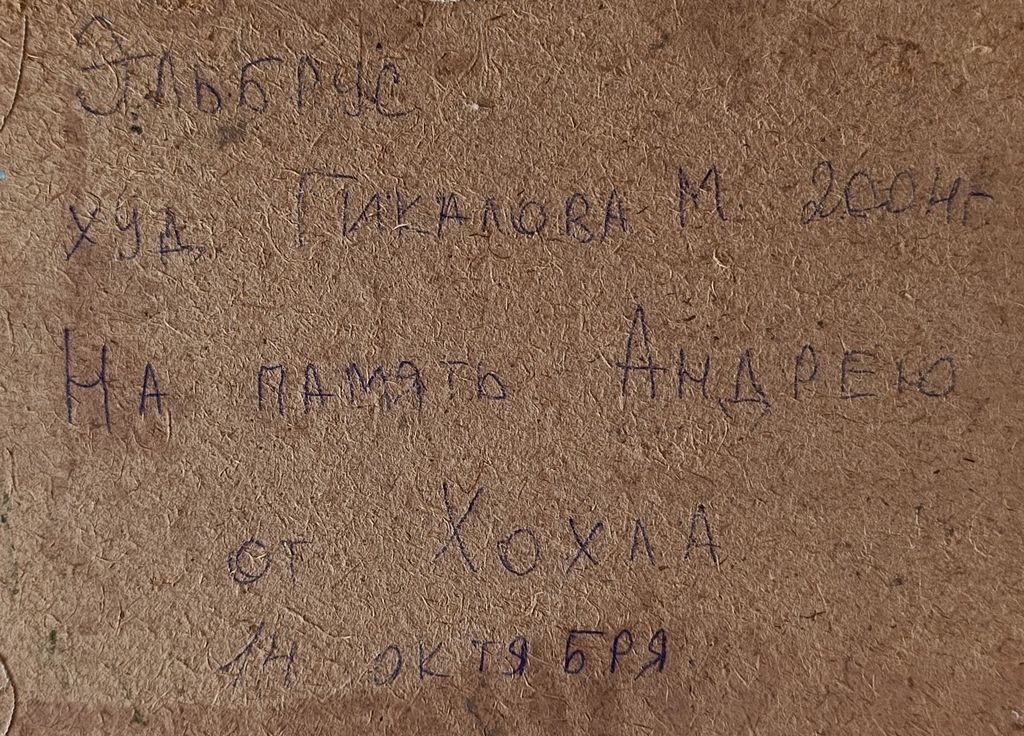 Эльбрус
худ. Пикалова М. 2004г
На память Андрею
от Хохла
14 октября.